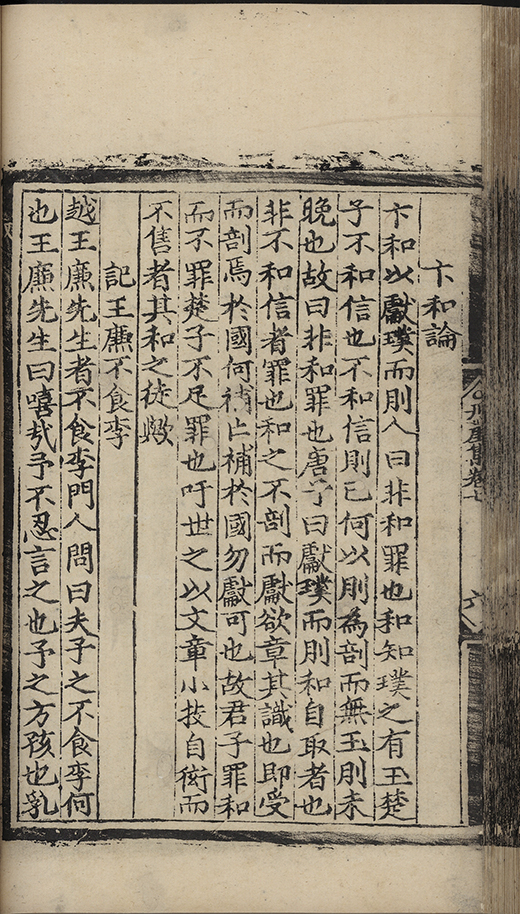 卞和論
卞和以獻璞而刖人曰非和罪也和知璞之有玉楚
子不和信也不和信則已何以刖為剖而無玉刖未
晚也故曰非和罪也唐子曰獻璞而刖和自取者也
非不和信者罪也和之不剖而獻欲章其識也即受
而剖焉於國何補亡補於國勿獻可也故君子罪和
而不罪楚子不足罪也吁世之以文章小技自衒而
不售者其和之徒歟
記王廉不食李
越王廉先生者不食李門人問曰夫子之不食李何
也王廉先生曰嘻哉予不忍言之也予之方孩也乳
集卷七
六